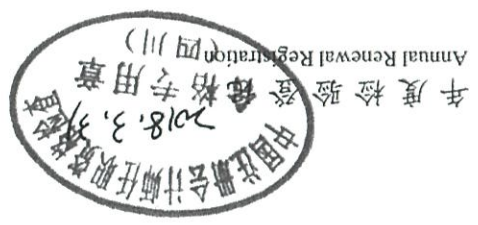 年度检验登记
Annual Renewal Registration
中国注册会计师任职资格检查
2018.3.31
合格专用章
（四川）